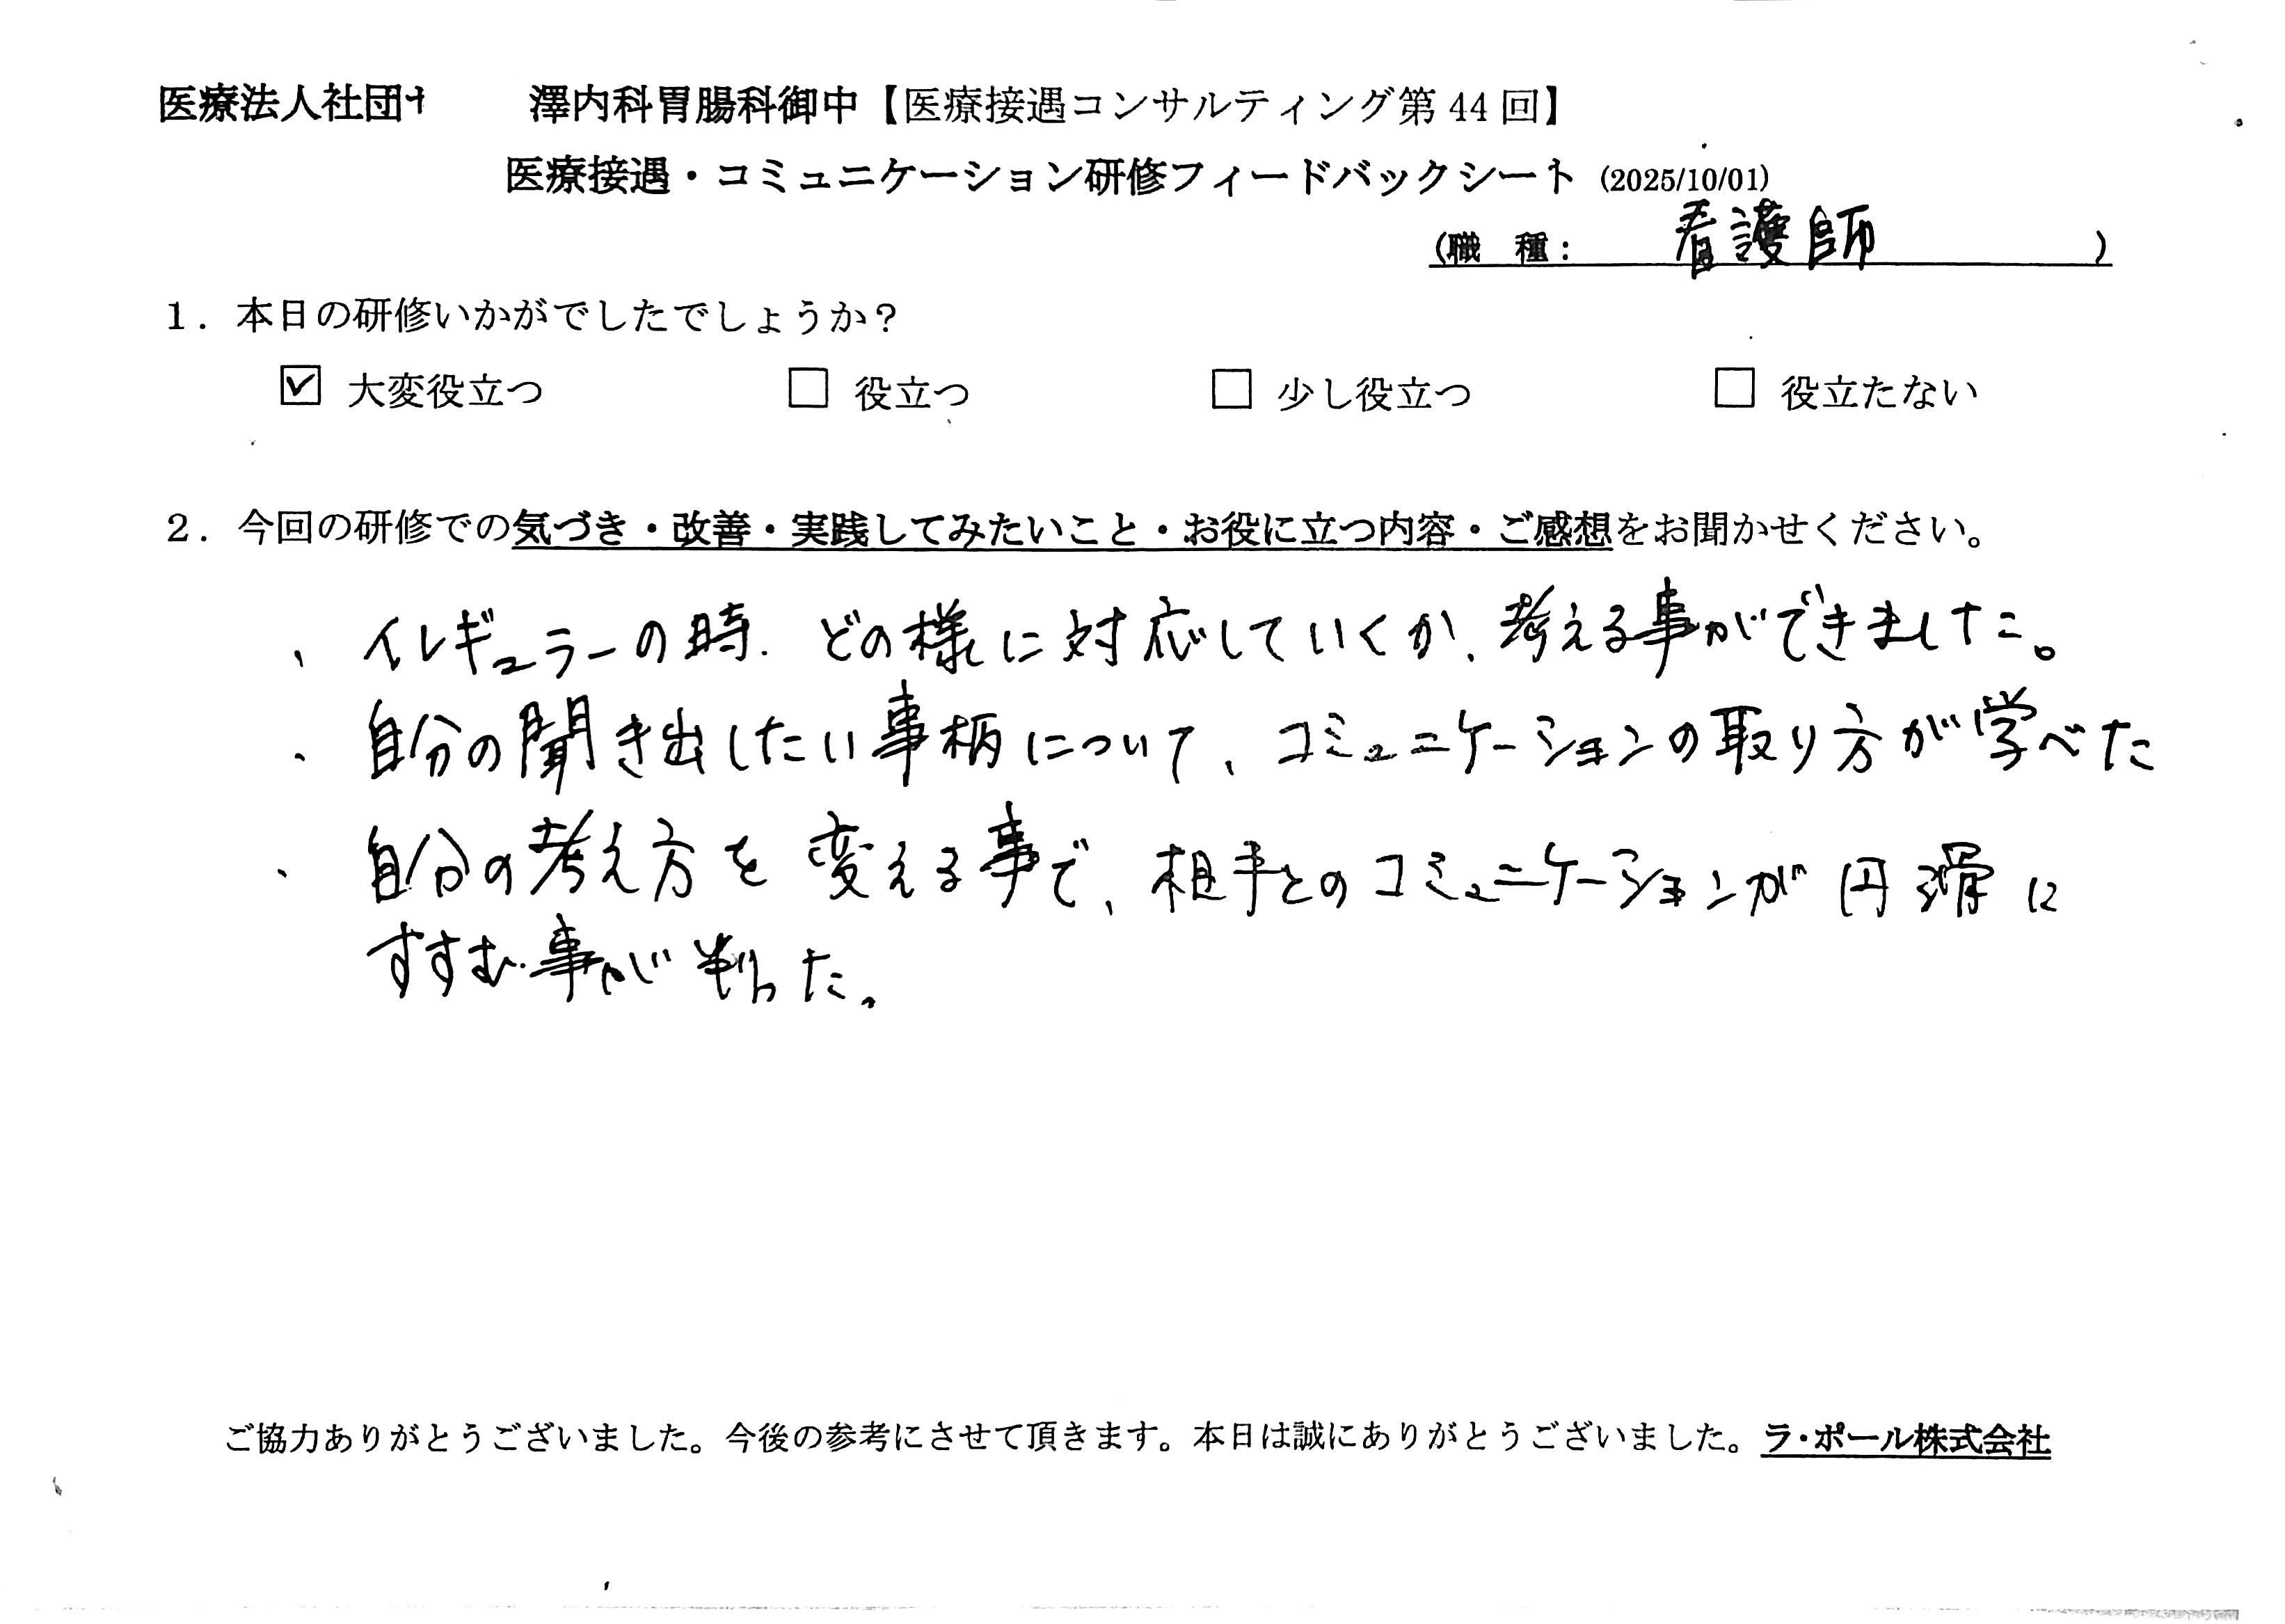 医療法人社団 澤内科胃腸科御中【医療接遇コンサルティング第44回】
医療接遇・コミュニケーション研修フィードバックシート (2025/10/01)
(職 種: 看護師 )
1. 本日の研修いかがでしたでしょうか?
☑ 大変役立つ □ 役立つ □ 少し役立つ □ 役立たない
2. 今回の研修での気づき・改善・実践してみたいこと・お役に立つ内容・ご感想をお聞かせください。
、イレギュラーの時. どの様に対応していくか、考える事ができました。
、自分の聞き出したい事柄について、コミュニケーションの取り方が学べた
、自分の考え方を変える事で、相手とのコミュニケーションが円滑に
すすむ事が判った。
ご協力ありがとうございました。今後の参考にさせて頂きます。本日は誠にありがとうございました。ラ・ポール株式会社